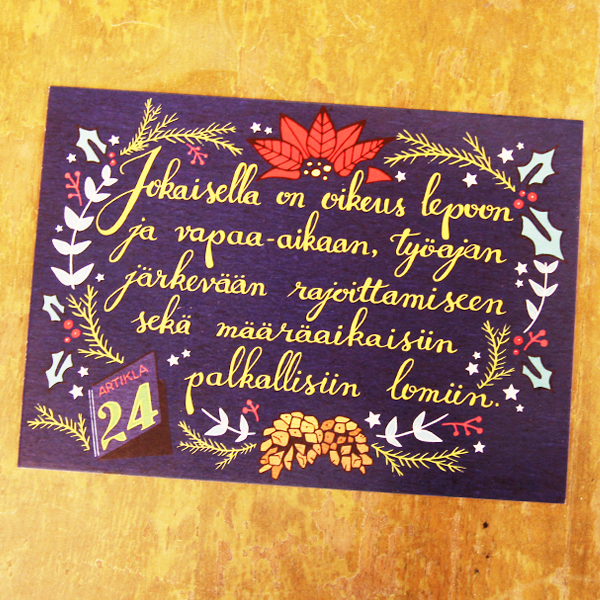 Jokaisella on oikeus lepoon
ja vapaa-aikaan, työajan
järkevään rajoittamiseen
sekä määräaikaisiin
palkallisiin lomiin.
ARTIKLA
24